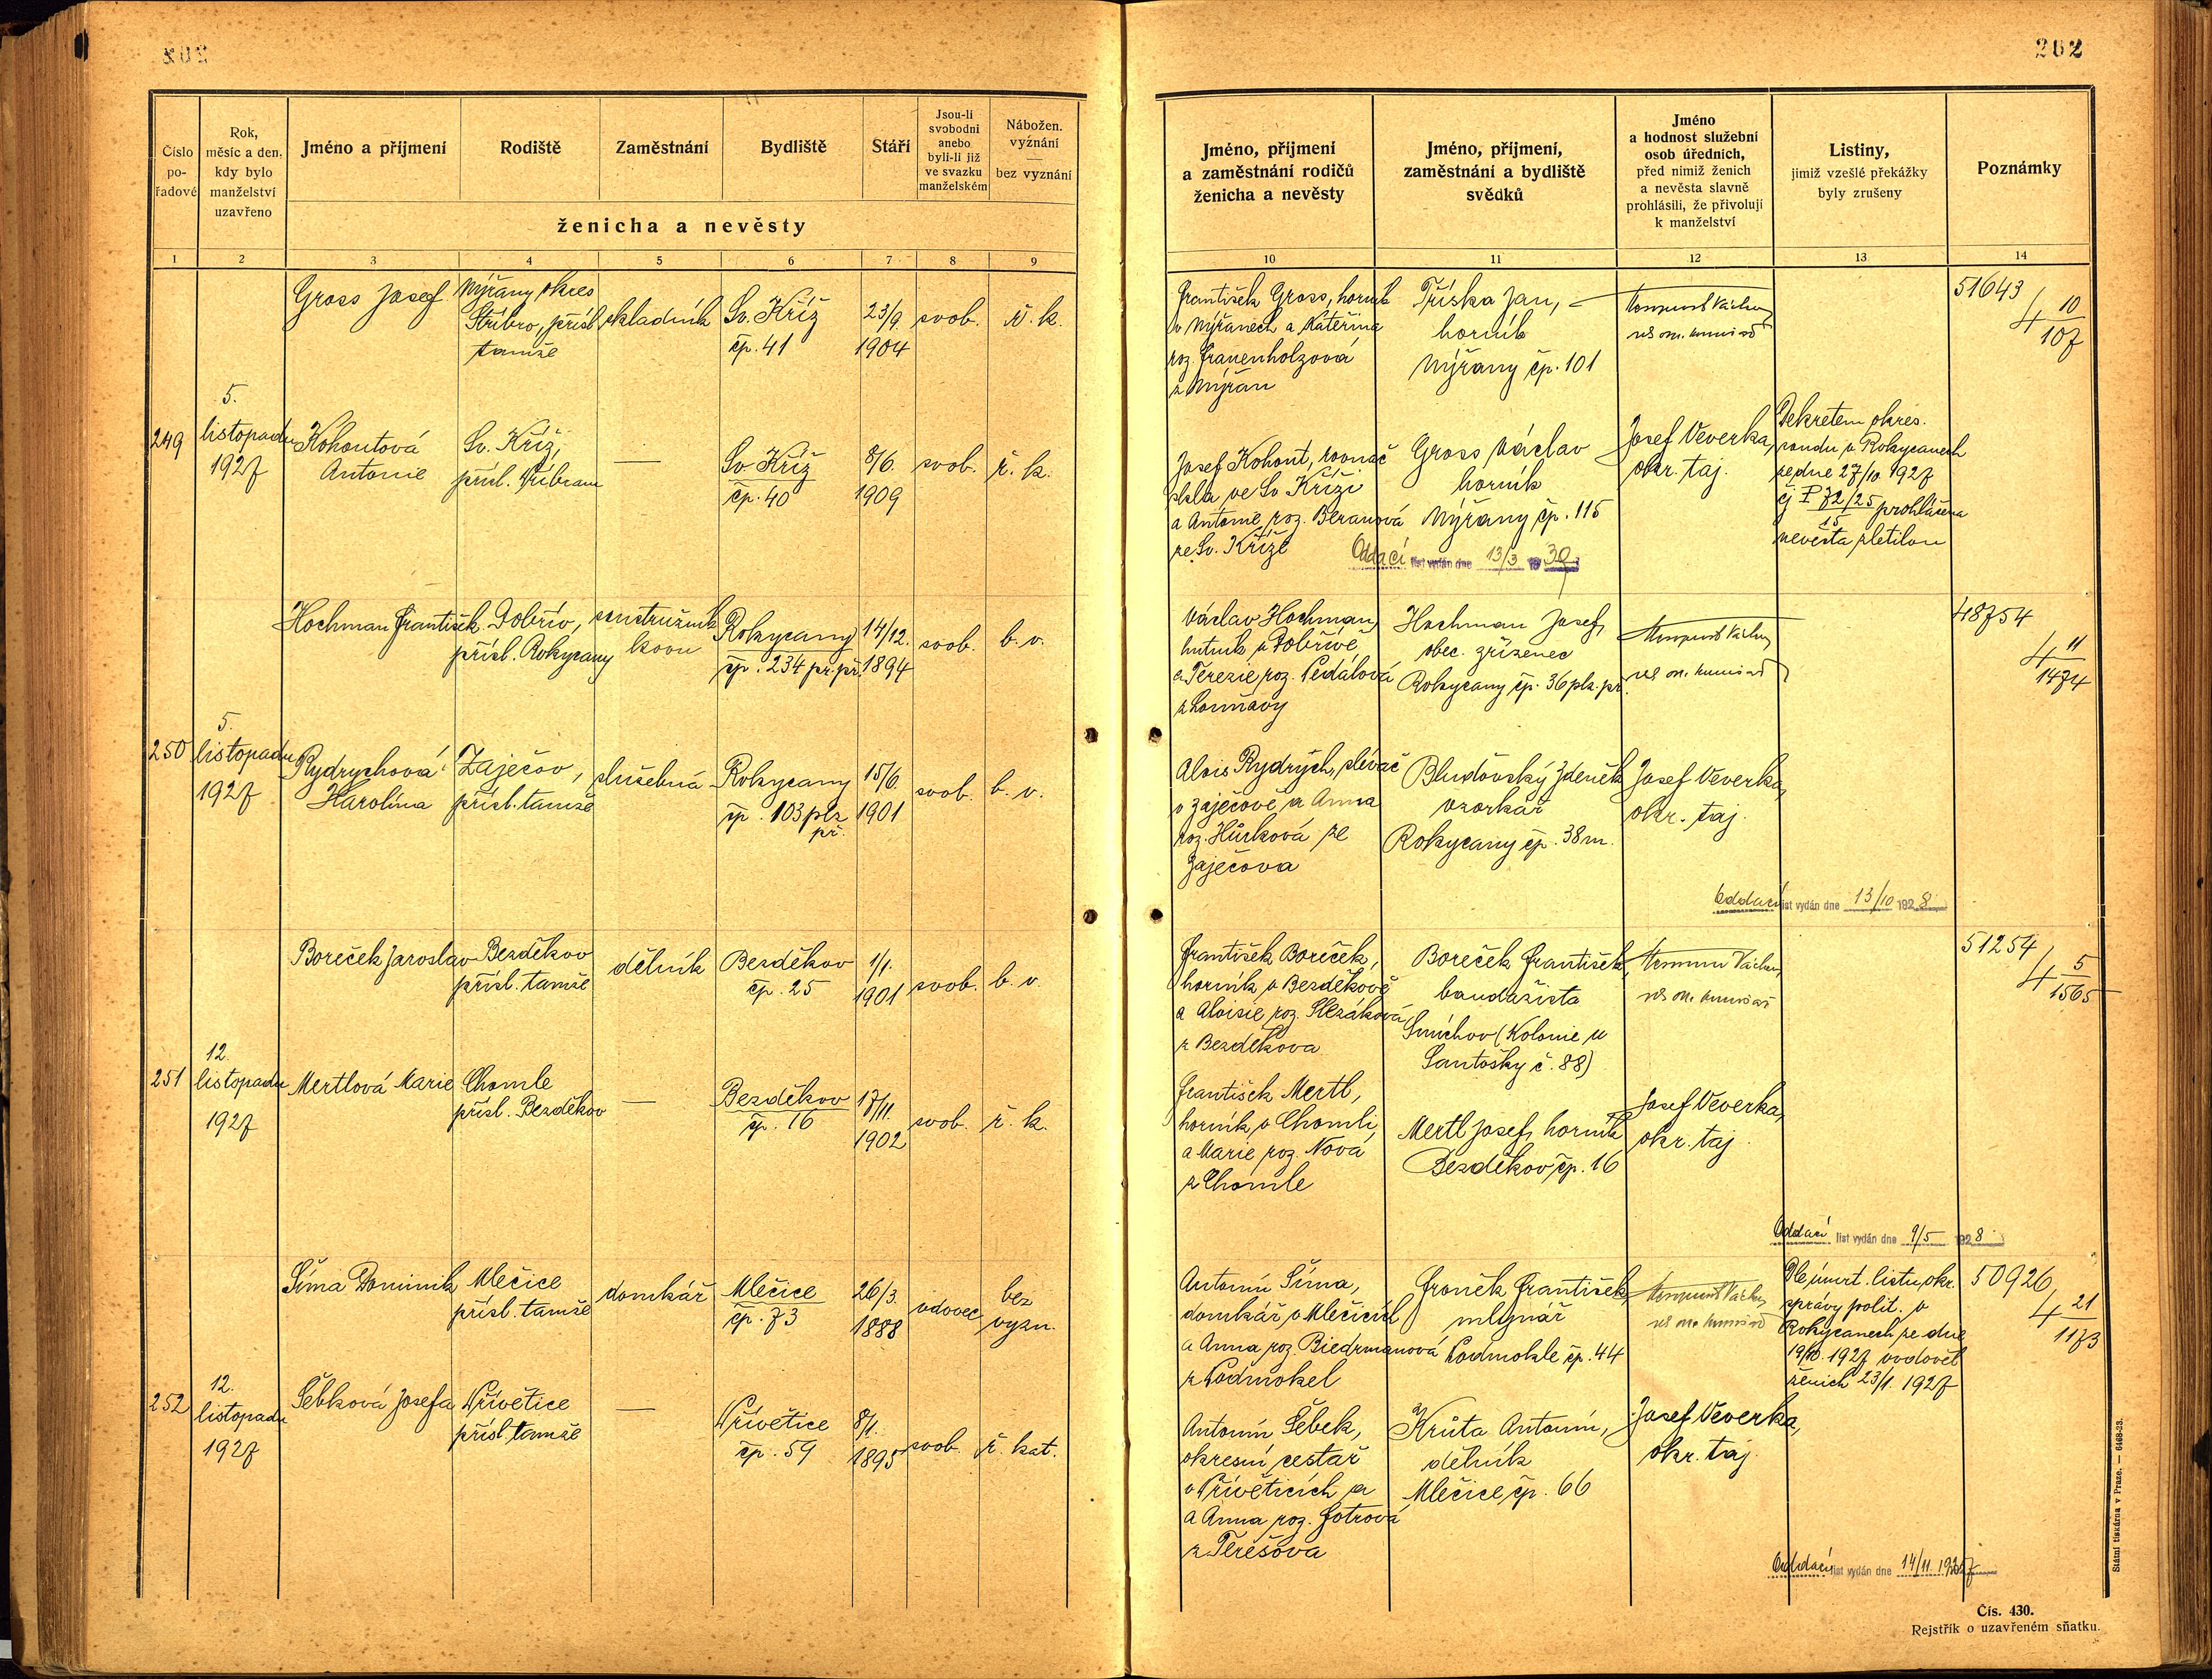 202
Číslo
po-
řadové
Rok,
měsíc a den,
kdy bylo
manželství
uzavřeno
Jméno a příjmení
Rodiště
Zaměstnání
Bydliště
Stáří
Jsou-li
svobodni
anebo
byli-li již
ve svazku
manželském
Nábožen.
vyznání
—
bez vyznání
ženicha a nevěsty
1 2 3 4 5 6 7 8 9
Jméno, příjmení
a zaměstnání rodičů
ženicha a nevěsty
Jméno, příjmení,
zaměstnání a bydliště
svědků
Jméno
a hodnost služební
osob úředních,
před nimiž ženich
a nevěsta slavně
prohlásili, že přivolují
k manželství
Listiny,
jimiž vzešlé překážky
byly zrušeny
Poznámky
10 11 12 13 14
249
5.
listopadu
1927
Gross Josef
Nýřany okres
Stříbro, přísl.
tamže
skladník
Sv. Kříž
čp. 41
23/9.
1904
svob.
ř. k.
František Gross, horník
v Nýřanech a Kateřina
roz. Frauenholzová
z Nýřan
Tříska Jan,
horník
Nýřany čp. 101
51643
4 10
107
Kohoutová
Antonie
Sv. Kříž,
přísl. Příbram
—
Sv. Kříž
čp. 40
8/6.
1909
svob.
ř. k.
Josef Kohout, rovnač
skla ve Sv. Kříži
a Antonie roz. Beranová
ze Sv. Kříže
Gross Václav
horník
Nýřany čp. 115
Josef Veverka,
okr. taj.
Dekretem okres.
soudu v Rokycanech
ze dne 27/10. 1927
čj P 72/25 prohlášena
15
nevěsta zletilou
Oddací list vydán dne 13/3 1930
250
5.
listopadu
1927
Hochman František
Dobřív,
přísl. Rokycany
soustružník
kovu
Rokycany
čp. 234 pr. př.
14/12.
1894
svob.
b. v.
Václav Hochman,
hutník v Dobřívě,
a Terezie roz. Pedálová
Hochman Josef,
obec. zřízenec
Rokycany čp. 36 plz. př.
48754
4 11
1474
Rydrychová
Karolína
Zaječov,
přísl. tamže
služebná
Rokycany
čp. 103 plz
př.
15/6.
1901
svob.
b. v.
Alois Rydrych, slévač
v Zaječově a Anna
roz. Hůrková ze
Zaječova
Bludovský Zdeněk
vzorkař
Rokycany čp. 38 m.
Josef Veverka,
okr. taj.
Oddací list vydán dne 13/10 1928
251
12.
listopadu
1927
Boreček Jaroslav
Bezděkov
přísl. tamže
dělník
Bezděkov
čp. 25
1/1.
1901
svob.
b. v.
František Boreček,
horník v Bezděkově
a Aloisie roz. Slezáková
z Bezděkova
Boreček František,
bandažista
Smíchov (Kolonie u
Santošky č. 88)
51254
4 5
1565
Mertlová Marie
Chomle
přísl. Bezděkov
—
Bezděkov
čp. 16
17/11.
1902
svob.
ř. k.
František Mertl,
horník v Chomli
a Marie roz. Nová
z Chomle
Mertl Josef, horník
Bezděkov čp. 16
Josef Veverka,
okr. taj.
Oddací list vydán dne 9/5 1928
252
12.
listopadu
1927
Šíma Dominik
Mlečice
přísl. tamže
domkář
Mlečice
čp. 73
26/3.
1888
vdovec
bez
vyzn.
Antonín Šíma,
domkář v Mlečicích
a Anna roz. Biedrmanová
z Podmokel
Froněk František,
mlynář
Podmokle čp. 44
Dle úmrt. listu okr.
správy polit. v
Rokycanech ze dne
19/10. 1927 ovdověl
ženich 23/1. 1927
50926
4 21
1173
Šebková Josefa
Přívětice
přísl. tamže
—
Přívětice
čp. 59
8/1.
1895
svob.
ř. kat.
Antonín Šebek,
okresní cestář
v Příveticích a
a Anna roz. Fotrová
z Terešova
Krůta Antonín,
dělník
Mlečice čp. 66
Josef Veverka,
okr. taj.
Oddací list vydán dne 14/11. 1927
Státní tiskárna v Praze. — 6468-23.
Čís. 430.
Rejstřík o uzavřeném sňatku.